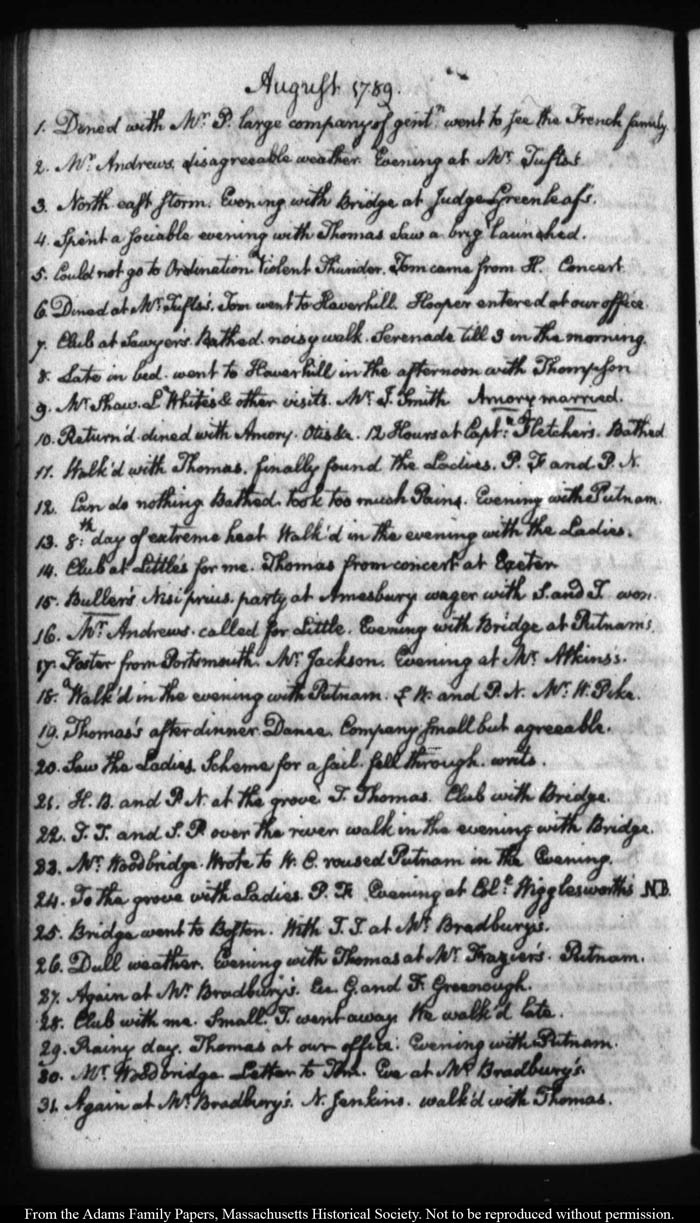 August 1789.
1. Dined with Mr. P. large company of gent.n went to see the French family.
2. Mr. Andrews. disagreeable weather. Evening at Mr. Tufts's.
3. North east storm. Evening with Bridge at Judge Greenleaf's.
4. Spent a sociable evening with Thomas Saw a brig launched.
5. Could not go to Ordination Violent Thunder. Tom came from H. Concert.
6. Dined at Mr. Tufts's. Tom went to Haverhill. Hooper entered at our office.
7. Club at Sawyer's. Bathed. noisy walk. Serenade till 3 in the morning.
8. Late in bed. went to Haverhill in the afternoon with Thompson
9. Mr. Shaw. L. White's & other visits. Mr. J. Smith Amory married.
10. Return'd. dined with Amory. Otis &c. 12 Hours at Capt.n Fletcher's. Bathed
11. Walk'd with Thomas. finally found the Ladies. P. F and P. N.
12. Can do nothing Bathed. took too much Pains. Evening with Putnam.
13. 8.th day of extreme heat Walk'd in the evening with the Ladies.
14. Club at Little's for me. Thomas from concert at Exeter
15. Buller's Nisi prius. party at Amesbury wager with S. and T. won.
16. Mr. Andrews. called for Little. Evening with Bridge at Putnam's.
17. Foster from Portsmouth. Mr. Jackson. Evening at Mr. Atkins's.
18. Walk'd in the evening with Putnam. & W. and P. N. Mr. W. Pike.
19. Thomas's after dinner. Dance. Company small but agreeable.
20. Saw the Ladies. Scheme for a sail. fell through. writs.
21. H. B. and P. N. at the grove. T. Thomas. Club with Bridge.
22. T. T. and S. P. over the river walk in the evening with Bridge.
23. Mr. Woodbridge. Wrote to W. C. roused Putnam in the Evening.
24. To the grove with Ladies. P. F. Evening at Col.e Wigglesworth's N.B.
25. Bridge went to Boston. With T. T. at Mr. Bradbury's.
26. Dull weather. Evening with Thomas at Mr. Frazier's. Putnam.
27. Again at Mr. Bradbury's. G. and F. Greenough.
28. Club with me. Small. T. went away. We walk'd late.
29. Rainy day. Thomas at our office. Evening with Putnam.
30. Mr. Woodbridge Letter to Eve at Mr. Bradbury's.
31. Again at Mr. Bradbury's. N. Jenkins. walk'd with Thomas.
From the Adams Family Papers, Massachusetts Historical Society. Not to be reproduced without permission.